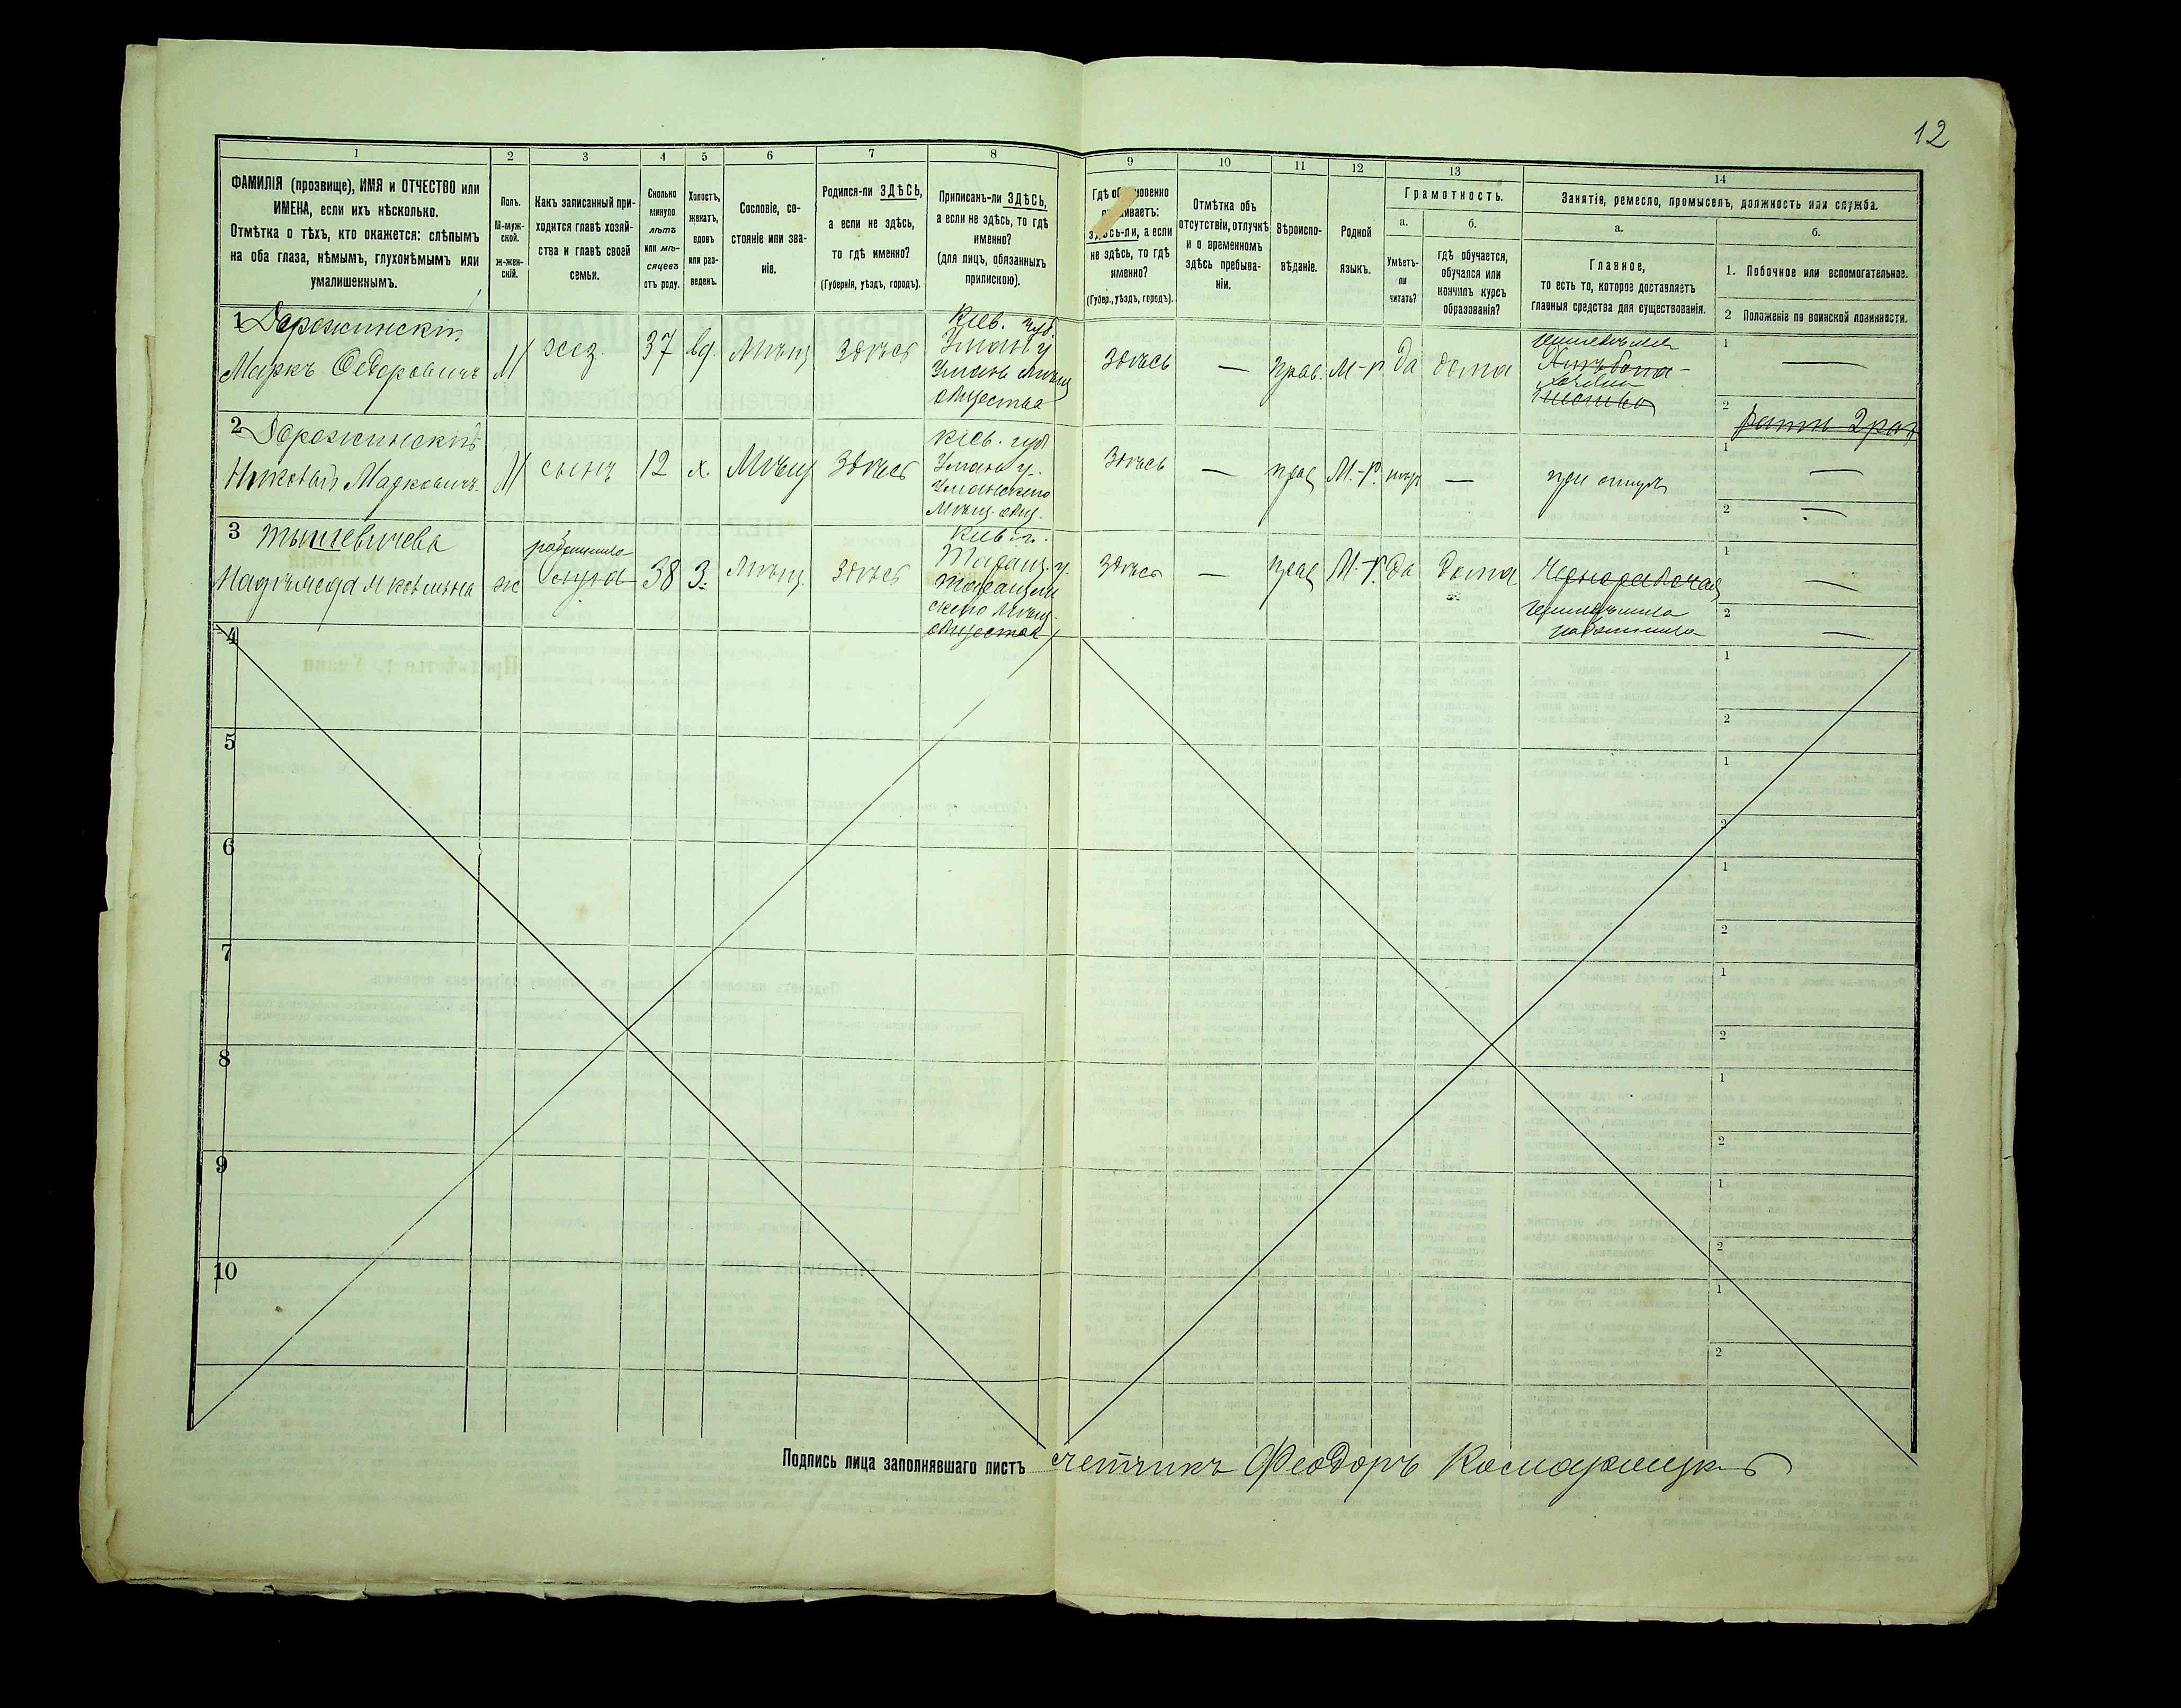 12
1 2 3 4 5 6 7 8 9 10 11 12 13 14
ФАМИЛІЯ (прозвище), ИМЯ и ОТЧЕСТВО или
ИМЕНА, если ихъ нѣсколько.
Отмѣтка о тѣхъ, кто окажется: слѣпымъ
на оба глаза, нѣмымъ, глухонѣмымъ или
умалишеннымъ.
Полъ.
М-муж-
ской.
Ж-жен-
скій.
Какъ записанный при-
ходится главѣ хозяй-
ства и главѣ своей
семьи.
Сколько
минуло
лѣтъ
или мѣ-
сяцевъ
отъ роду.
Холостъ,
женатъ,
вдовъ
или раз-
веденъ.
Сословіе, со-
стояніе или зва-
ніе.
Родился-ли ЗДѢСЬ,
а если не здѣсь,
то гдѣ именно?
(Губернія, уѣздъ, городъ).
Приписанъ-ли ЗДѢСЬ,
а если не здѣсь, то гдѣ
именно?
(для лицъ, обязанныхъ
припискою).
Гдѣ
здѣсь-ли, а если
не здѣсь, то гдѣ
именно?
(Губер., уѣздъ, городъ).
Отмѣтка объ
отсутствіи, отлучкѣ
и о временномъ
здѣсь пребыва-
ніи.
Вѣроиспо-
вѣданіе.
Родной
языкъ.
Грамотность.
а.
Умѣетъ-
ли
читать?
б.
гдѣ обучается,
обучался или
кончилъ курсъ
образованія?
Занятія, ремесло, промыселъ, должность или служба.
а.
Главное,
то есть то, которое доставляетъ
главныя средства для существованія.
б.
1. Побочное или вспомогательное.
2 Положеніе по воинской повинности.
1 Дорожинскій
Маркъ Федоровичъ
М
хоз.
37
вд.
Мѣщ
здѣсь
Кіев. губ.
Уман у
Умань Мѣщ
общества
здѣсь
—
прав.
М-р
да
дома
1 —
2 ратн 2 раз
2 Дорожинскій
Марковичъ
М
сынъ
12
х.
Мѣщ
здѣсь
Кіев. губ
Уман у.
Уманскаго
Мѣщ. общ.
здѣсь
—
прав
М.-р.
—
при отцѣ
1 —
2 —
3 Тышкевичева
ж
работница
38
З.
Мѣщ.
здѣсь
Кіев г.
Таращ. у.
Таращан
скаго Мѣщ.
общества
здѣсь
—
прав
М.-р.
да
дома
Чернорабочая
работница
1 —
2 —
4
1
2
5
1
2
6
1
2
7
1
2
8
1
2
9
1
2
10
1
2
Подпись лица заполнявшаго листъ счетчикъ Феодоръ